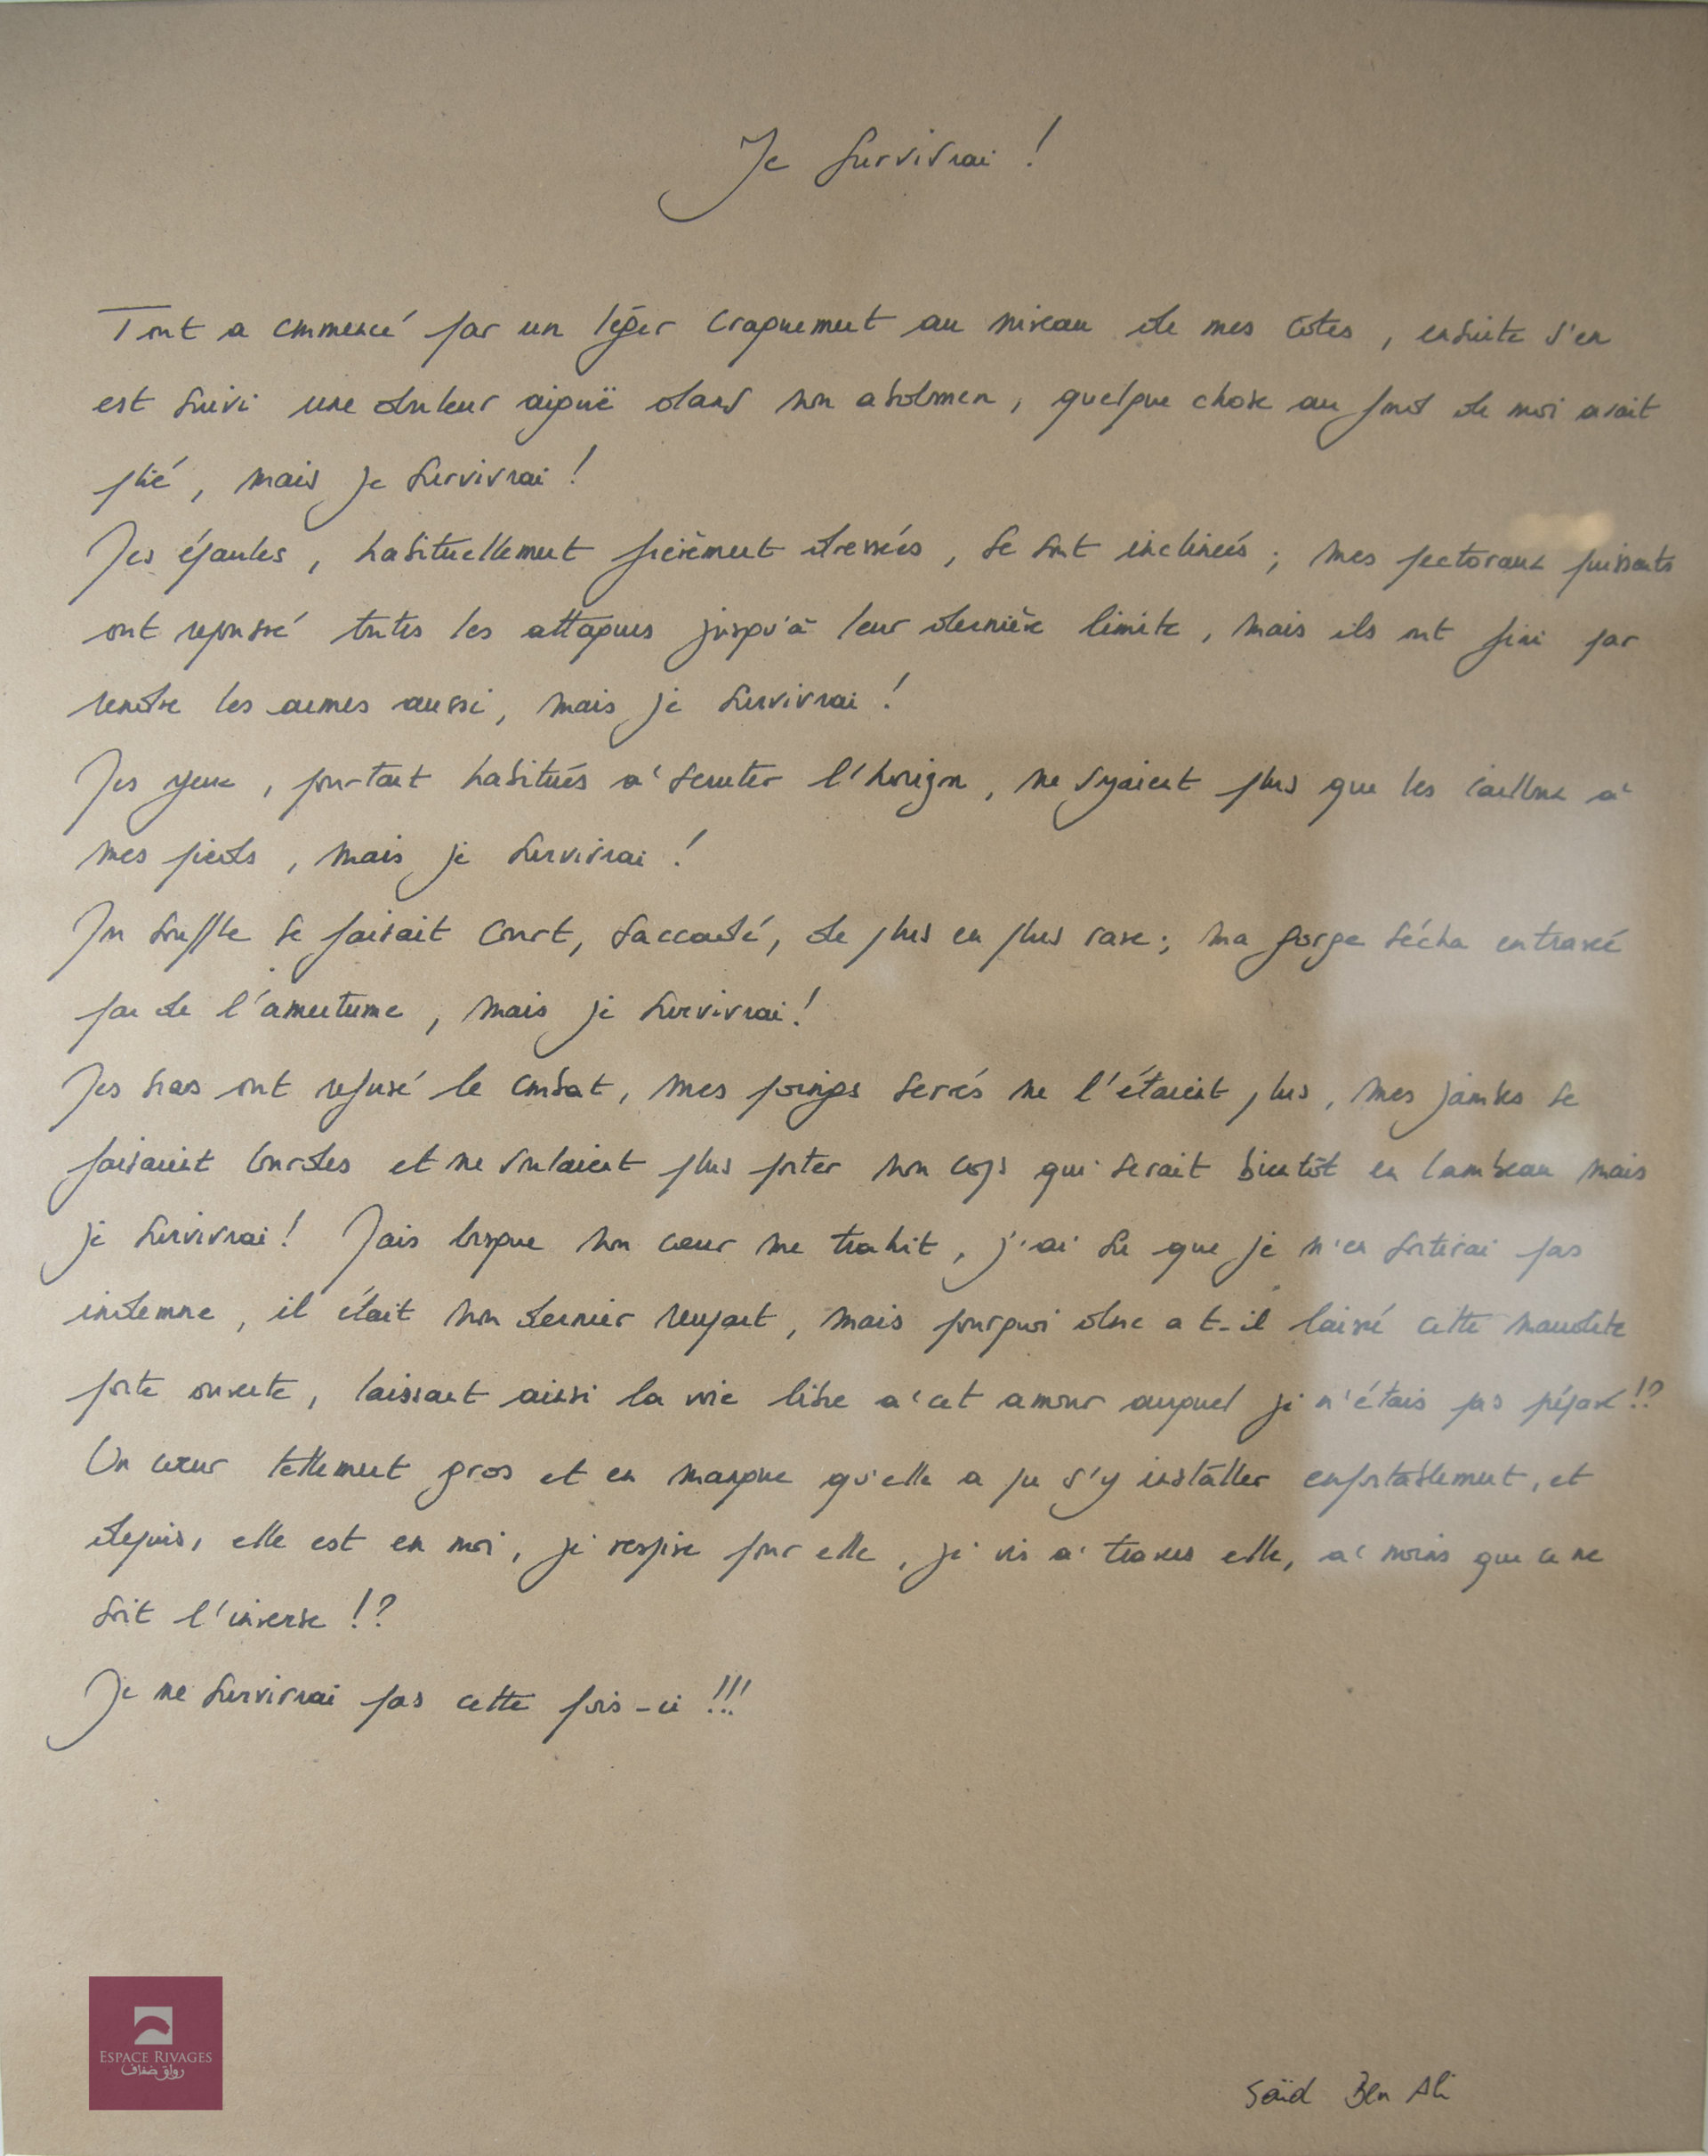 Je survivrai !
Tout a commencé par un léger craquement au niveau de mes côtes , ensuite s'en
est suivi une douleur aiguë dans mon abdomen , quelque chose au fond de moi avait
plié , mais je survivrai !
Mes épaules , habituellement fièrement dressées , se sont inclinées ; mes pectoraux puissants
ont repoussé toutes les attaques jusqu'à leur dernière limite , mais ils ont fini par
rendre les armes aussi , mais je survivrai !
Mes yeux , pourtant habitués à scruter l'horizon , ne voyaient plus que les cailloux à
mes pieds , mais je survivrai !
Mon souffle se faisait court, saccadé, de plus en plus rare ; ma gorge sécha entravée
par de l'amertume , mais je survivrai !
Mes bras ont refusé le combat , mes poings serrés ne l'étaient plus , mes jambes se
faisaient lourdes et ne voulaient plus porter mon corps qui serait bientôt en lambeau mais
je survivrai ! Mais lorsque mon cœur me trahit , j'ai su que je n'en sortirai pas
indemne , il était mon dernier rempart , mais pourquoi donc a t-il laissé cette maudite
porte ouverte , laissant ainsi la voie libre à cet amour auquel je n'étais pas préparé !?
Un cœur tellement gros et en manque qu'elle a pu s'y installer confortablement , et
depuis , elle est en moi , je respire pour elle , je vis à travers elle, à moins que ce ne
soit l'inverse !?
Je ne survivrai pas cette fois-ci !!!
ESPACE RIVAGES
رواق ضفاف
Saïd Ben Ali